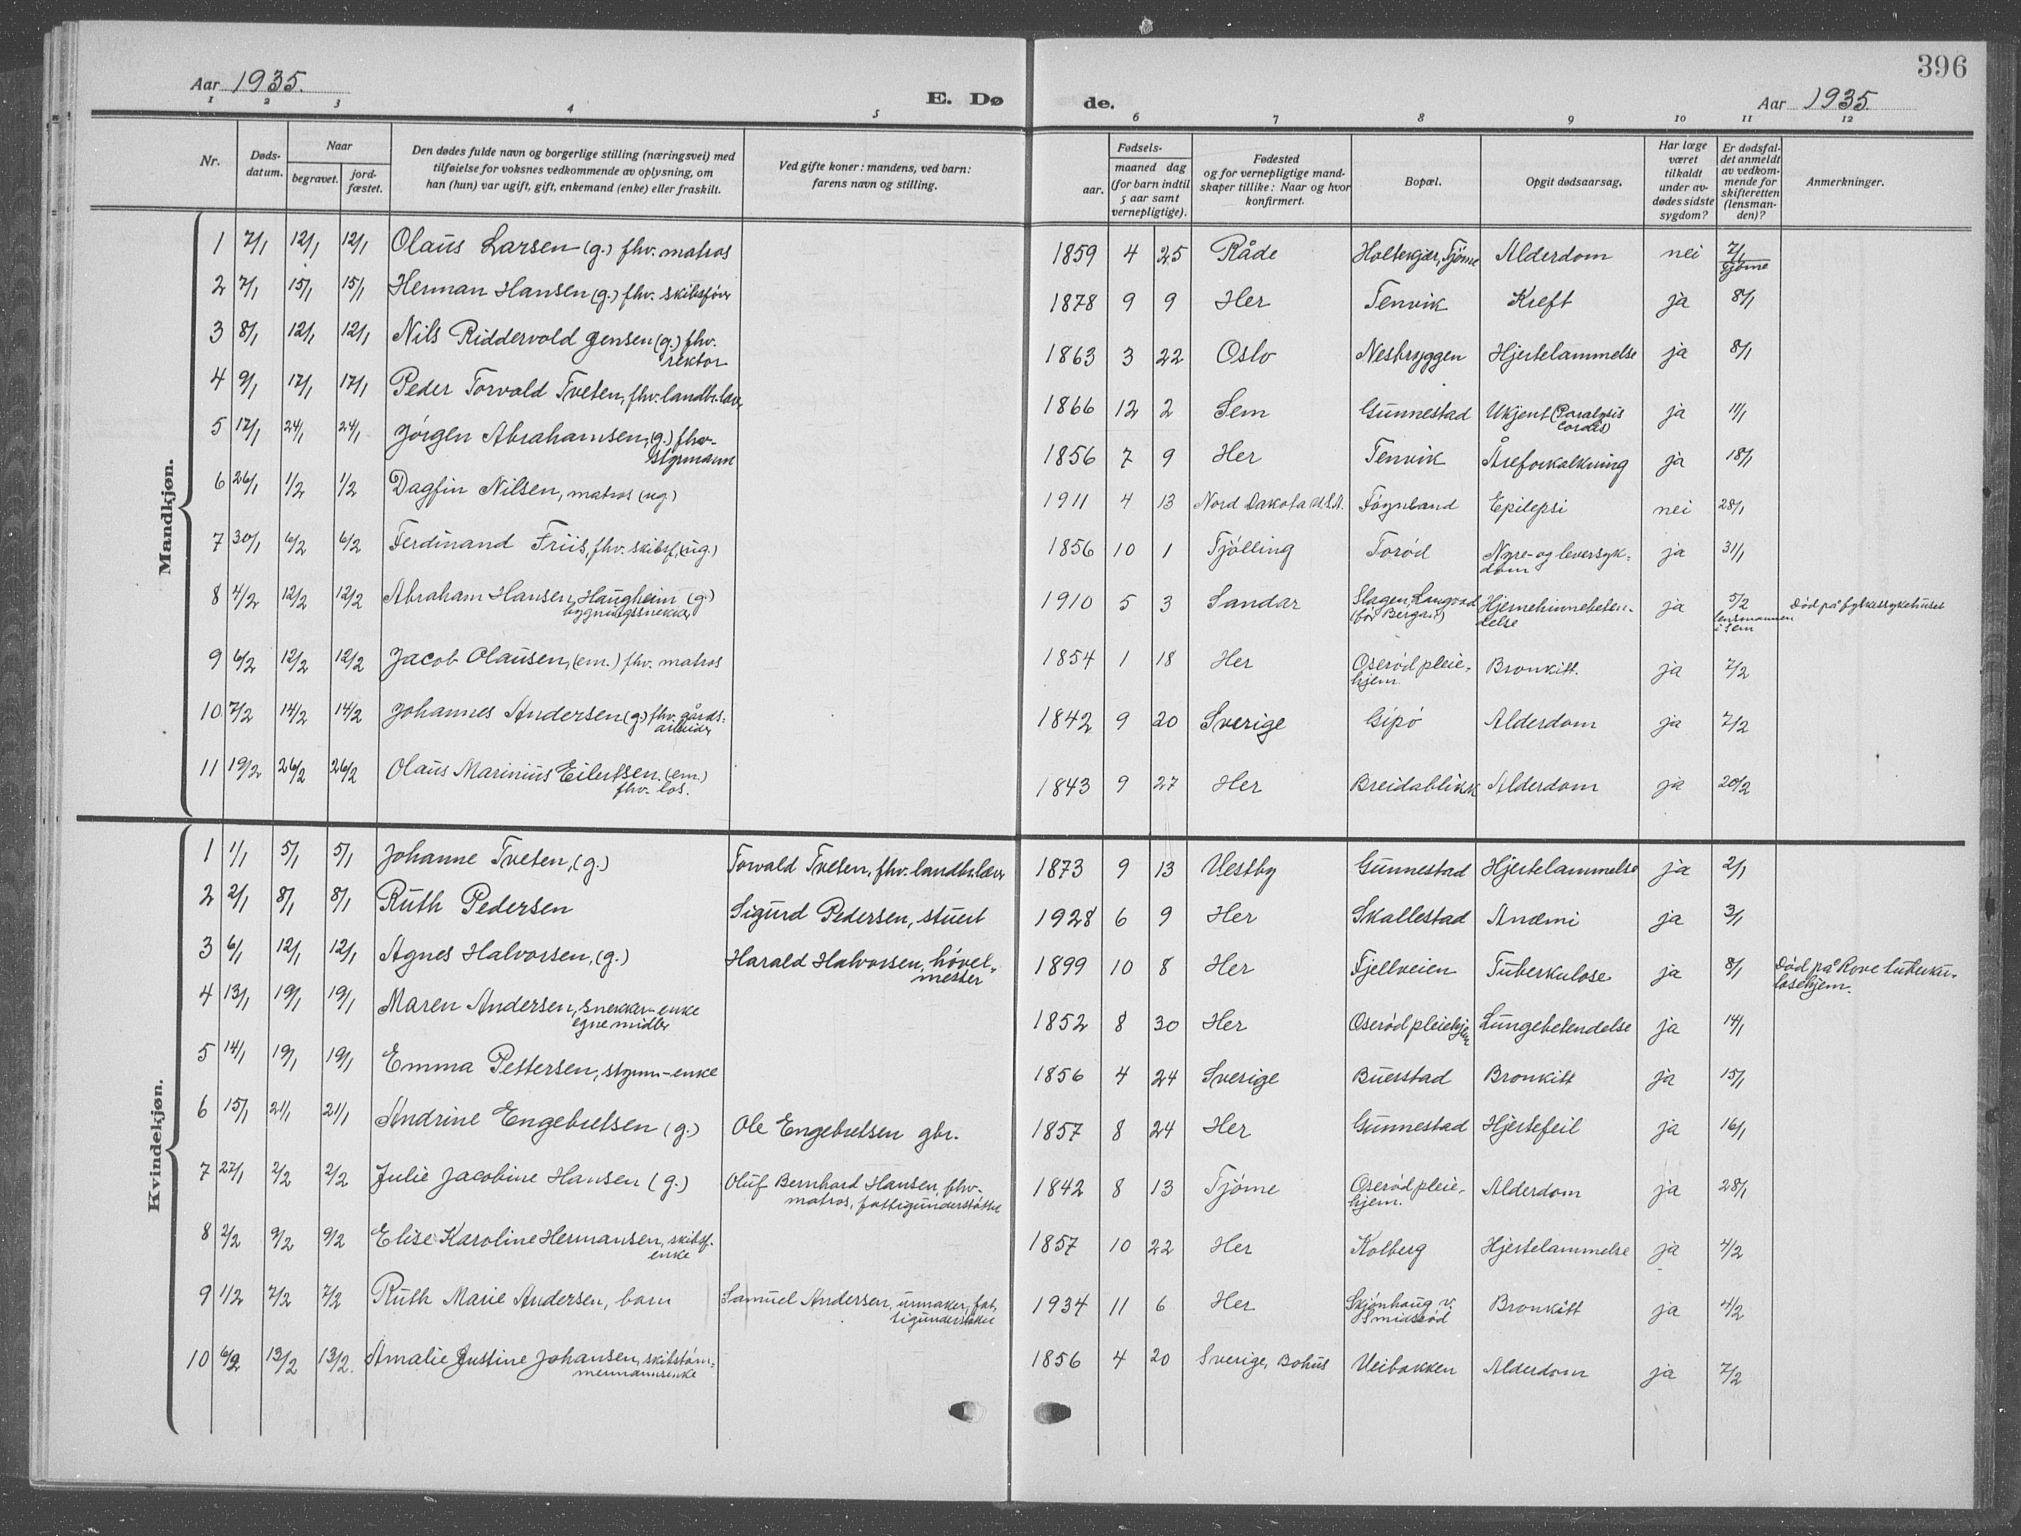 396
Aar 1935.
E. Dø de.
Aar 1935.
1 2 3 4 5 6 7 8 9 10 11 12
Nr.
Døds-
datum.
Naar
begravet.
jord-
fæstet.
Den dødes fulde navn og borgerlige stilling (næringsvei) med
tilføielse for voksnes vedkommende av oplysning, om
han (hun) var ugift, gift, enkemand (enke) eller fraskilt.
Ved gifte koner: mandens, ved barn:
farens navn og stilling.
Fødsels-
aar.
maaned dag
(for barn indtil
5 aar samt
vernepligtige).
Fødested
og for vernepligtige mand-
skaper tillike: Naar og hvor
konfirmert.
Bopæl.
Opgit dødsaarsag.
Har læge
været
tilkaldt
under av-
dødes sidste
sygdom?
Er dødsfal-
det anmeldt
av vedkom-
mende for
skifteretten
(lensman-
den)?
Anmerkninger.
Mandkjøn.
1 7/1 12/1 12/1 Olaus Larsen (g.) fhv. matros 1859 4 25 Råde Holtekjær, Tjøme Alderdom nei 7/1
Tjøme
2 7/1 15/1 15/1 Herman Hansen (g.) fhv. skibsfører 1878 9 9 Her Tenvik Kreft ja 8/1
3 8/1 12/1 12/1 Nils Riddervold Jensen (g.) fhv.
rektor 1863 3 22 Oslo Nesbryggen Hjertelammelse ja 8/1
4 9/1 17/1 17/1 Peder Torvald Tveten, fhv. landbr.lærer 1866 12 2 Sem Gunnestad Ukjent (Paralysis
cordis) ja 11/1
5 17/1 24/1 24/1 Jørgen Abrahamsen, (g.) fhv.
styrmann 1856 7 9 Her Tenvik Åreforkalkning ja 18/1
6 26/1 1/2 1/2 Dagfin Nilsen, matros (ug.) 1911 4 13 Nord Dakota U.S.A. Føynland Epilepsi nei 28/1
7 30/1 6/2 6/2 Ferdinand Friis, fhv. skibsf. (ug.) 1856 10 1 Tjølling Torød Nyre- og leversyk-
dom ja 31/1
8 4/2 12/2 12/2 Abraham Hansen, Haugheim (g.)
bygningssnekker 1910 5 3 Sandar Slagen, Langvad
Hjernehinnebeten-
delse ja 5/2
lensmannen
i Sem
Død på fylkessykehuset
9 6/2 12/2 12/2 Jacob Olausen, (em.) fhv. matros 1854 1 18 Her Oserød pleie-
hjem. Bronkitt. ja 7/2
10 7/2 14/2 14/2 Johannes Andersen (g.) fhv. gårds-
arbeider 1842 9 20 Sverige Gipø Alderdom ja 7/2
11 19/2 26/2 26/2 Olaus Marinius Eilertsen. (em.)
fhv. los. 1843 9 27 Her Breidablikk Alderdom ja 20/2
Kvindekjøn.
1 1/1 5/1 5/1 Johanne Tveten, (g.) Torvald Tveten, fhv. landbr.lærer 1873 9 13 Vestby Gunnestad Hjertelammelse ja 2/1
2 2/1 8/1 8/1 Ruth Pedersen Sigurd Pedersen, stuert 1928 6 9 Her Skallestad Anæmi ja 3/1
3 6/1 12/1 12/1 Agnes Halvorsen, (g.) Harald Halvorsen, høvel-
mester 1899 10 8 Her Fjellveien Tuberkulose ja 8/1 Død på Rove tuberku-
losehjem.
4 13/1 19/1 19/1 Maren Andersen, snekker-enke
egne midler 1852 8 30 Her Oserød pleiehjem Lungebetendelse ja 14/1
5 14/1 19/1 19/1 Emma Pettersen, styrm-enke 1856 4 24 Sverige Buerstad Bronkitt ja 15/1
6 15/1 21/1 21/1 Andrine Engebretsen (g.) Ole Engebretsen gbr. 1857 8 24 Her Gunnestad Hjertefeil ja 16/1
7 27/1 2/2 2/2 Julie Jacobine Hansen (g.) Oluf Bernhard Hansen, fhv.
matros, fattigunderstøttet 1842 8 13 Tjøme Oserød pleie-
hjem. Alderdom ja 28/1
8 2/2 9/2 9/2 Elise Karoline Hermansen, skibsf.
enke 1857 10 22 Her Kolberg Hjertelammelse ja 4/2
9 1/2 7/2 7/2 Ruth Marie Andersen, barn Samuel Andersen, urmaker, fat-
tigunderstøttet 1934 11 6 Her Skjønhaug v.
Smidsrød Bronkitt ja 4/2
10 6/2 13/2 13/2. Amalie Justine Johansen, skibstøm-
mermannsenke 1856 4 20 Sverige, Bohus Veibakken Alderdom ja 7/2